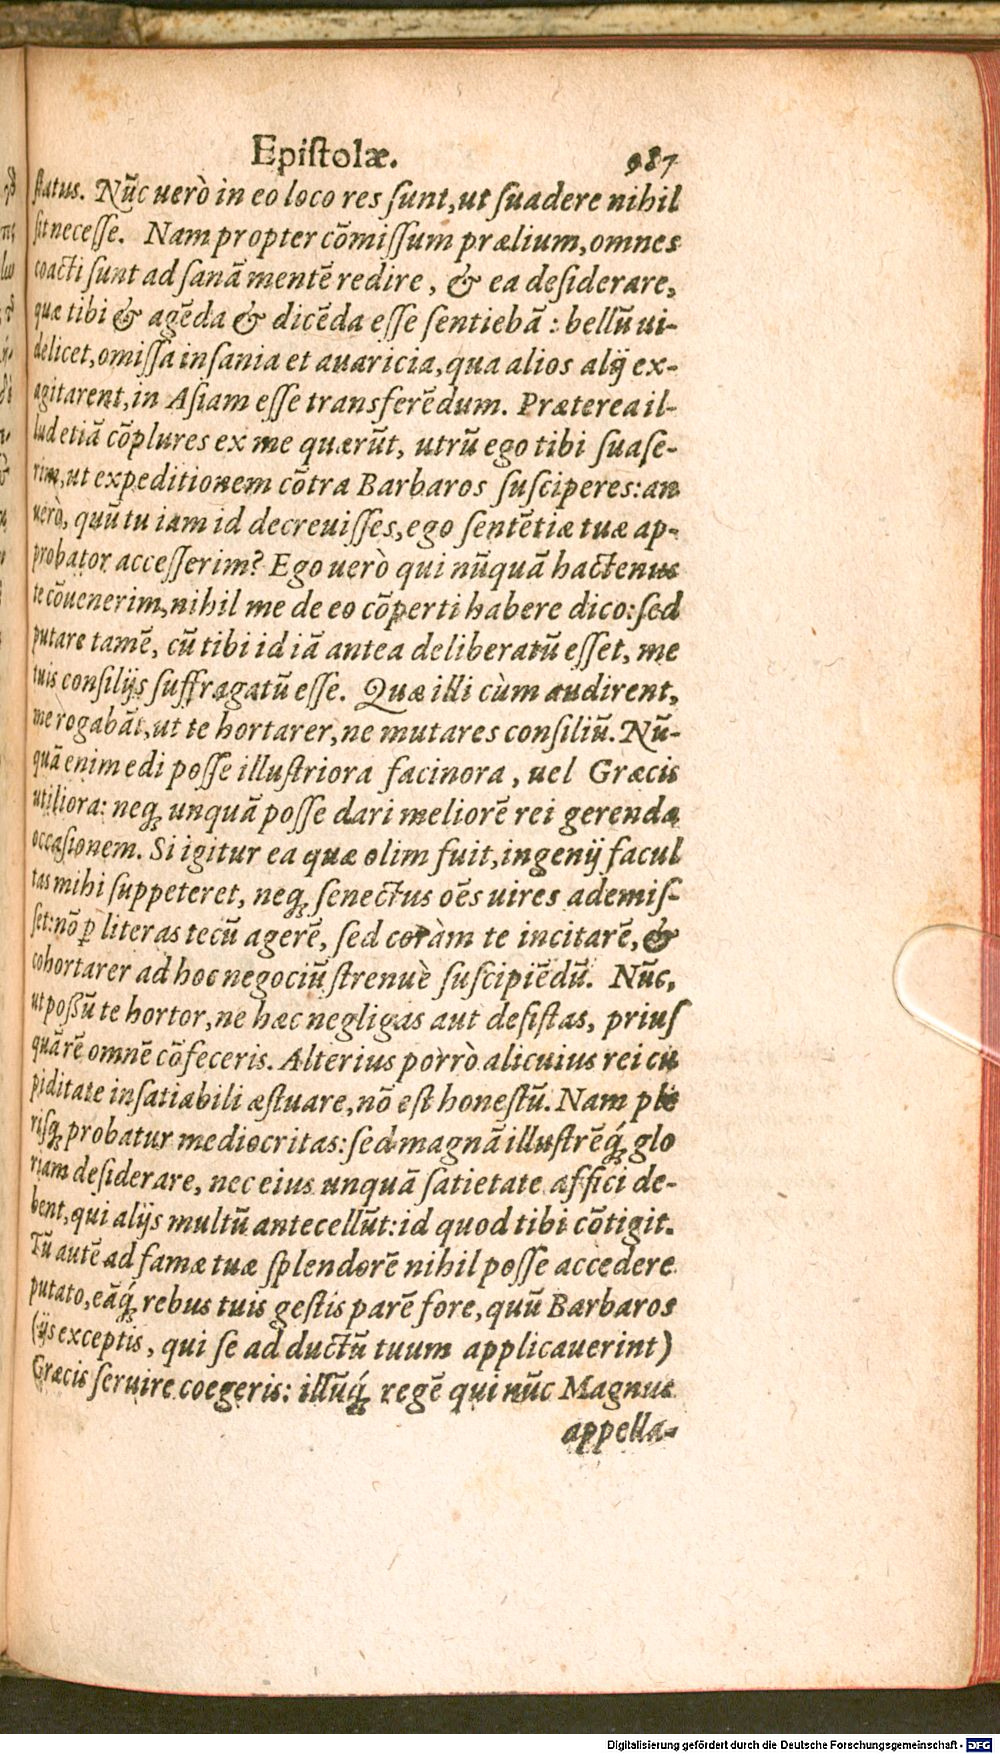 Epistolæ. 987
status. Nũc uerò in eo loco res sunt, ut suadere nihil
sit necesse. Nam propter cõmissum prælium, omnes
coacti sunt ad sanã mentẽ redire, & ea desiderare,
quæ tibi & agẽda & dicẽda esse sentiebã: bellũ ui-
delicet, omissa insania et auaricia, qua alios alij ex-
agitarent, in Asiam esse transferẽdum. Præterea il-
lud etiã cõplures ex me quærũt, utrũ ego tibi suase-
rim, ut expeditionem cõtra Barbaros susciperes: an
uerò, quũ tu iam id decreuisses, ego sentẽtiæ tuæ ap-
probator accesserim? Ego uerò qui nũquã hactenus
te cõuenerim, nihil me de eo cõperti habere dico: sed
putare tamẽ, cũ tibi id iã antea deliberatũ esset, me
tuis consilijs suffragatũ esse. Quæ illi cùm audirent,
me rogabãt, ut te hortarer, ne mutares consiliũ. Nũ-
quã enim edi posse illustriora facinora, uel Græcis
utiliora: neq; unquã posse dari meliorẽ rei gerendæ
occasionem. Si igitur ea quæ olim fuit, ingenij facul
tas mihi suppeteret, neq; senectus oẽs uires ademis-
set: nõ ꝑ literas tecũ agerẽ, sed coràm te incitarẽ, &
cohortarer ad hoc negociũ strenuè suscipiẽdũ. Nũc,
ut possũ te hortor, ne hæc negligas aut desistas, prius
quã rẽ omnẽ cõfeceris. Alterius porrò alicuius rei cu
piditate insatiabili æstuare, nõ est honestũ. Nam ple
risq; probatur mediocritas: sed magnã illustrẽq́; glo
riam desiderare, nec eius unquã satietate affici de-
bent, qui alijs multũ antecellũt: id quod tibi cõtigit.
Tũ autẽ ad famæ tuæ splendorẽ nihil posse accedere
putato, eãq́; rebus tuis gestis parẽ fore, quũ Barbaros
(ijs exceptis, qui se ad ductũ tuum applicauerint)
Græcis seruire coegeris: illũq́; regẽ qui nũc Magnus
appella-
Digitalisierung gefördert durch die Deutsche Forschungsgemeinschaft - DFG